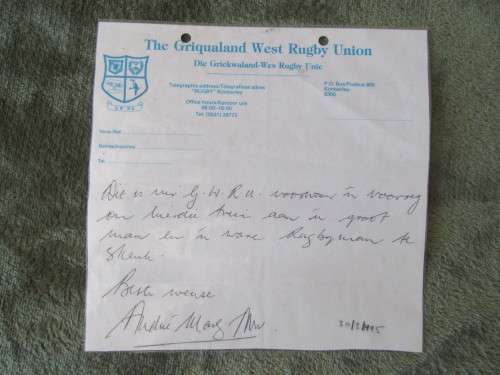 The Griqualand West Rugby Union
Die Griekwaland-Wes Rugby Unie
Telegraphic address/Telegrafiese adres
"RUGBY" Kimberley
Office hours/Kantoor ure
Tel. (0531) 28773
P.O. Box/Posbus
Kimberley
8300
Die is vir G.W.R.U. voorwaar 'n voorreg
om hierdie trui aan 'n groot
man en 'n ware Rugbyman te
skenk.
Beste wense
André